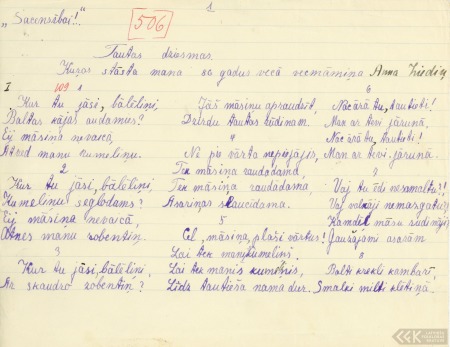 1
„Sacensībai!.."
506
Tautas dziesmas.
Kuras stāsta mana 80 gadus vecā vecmāmiņa Anna
I 109 1
Kur tu jāsi, bāleliņi,
Baltas kājas audamas?
Ej māsiņa nevaicā,
Atved manu kumeliņu.
2
Kur tu jāsi, bāleliņi,
Kumeliņu seglodams?
Ej māsiņa nevaicā,
Atnes manu zobentiņ.
3
Kur tu jāsi, bāleliņi,
Ar skaudro zobentiņ?
Jāš māsiņu apraudzīt,
Dzirdu tautas
4
Ne pie vārta nepiejājis,
Tek māsiņa raudādama,
Tek māsiņa raudādama,
Asariņas slaucīdama.
5
Cel, māsiņa, plaši vārtus!
Lai tek manis kumeliņis,
Lai tek manis kumelnis,
Līdz tautieša nama dur.
6
Nāc ārā tu, tautieti!
Man ar tevi jārunā.
Nāc ārā tu, tautieti!
Man ar tevi jārunā.
7
Vaj tu
Vaj
Kamdēļ māsu
asarām
8
Balti krekli kambarī,
Smalki milti klētiņā.